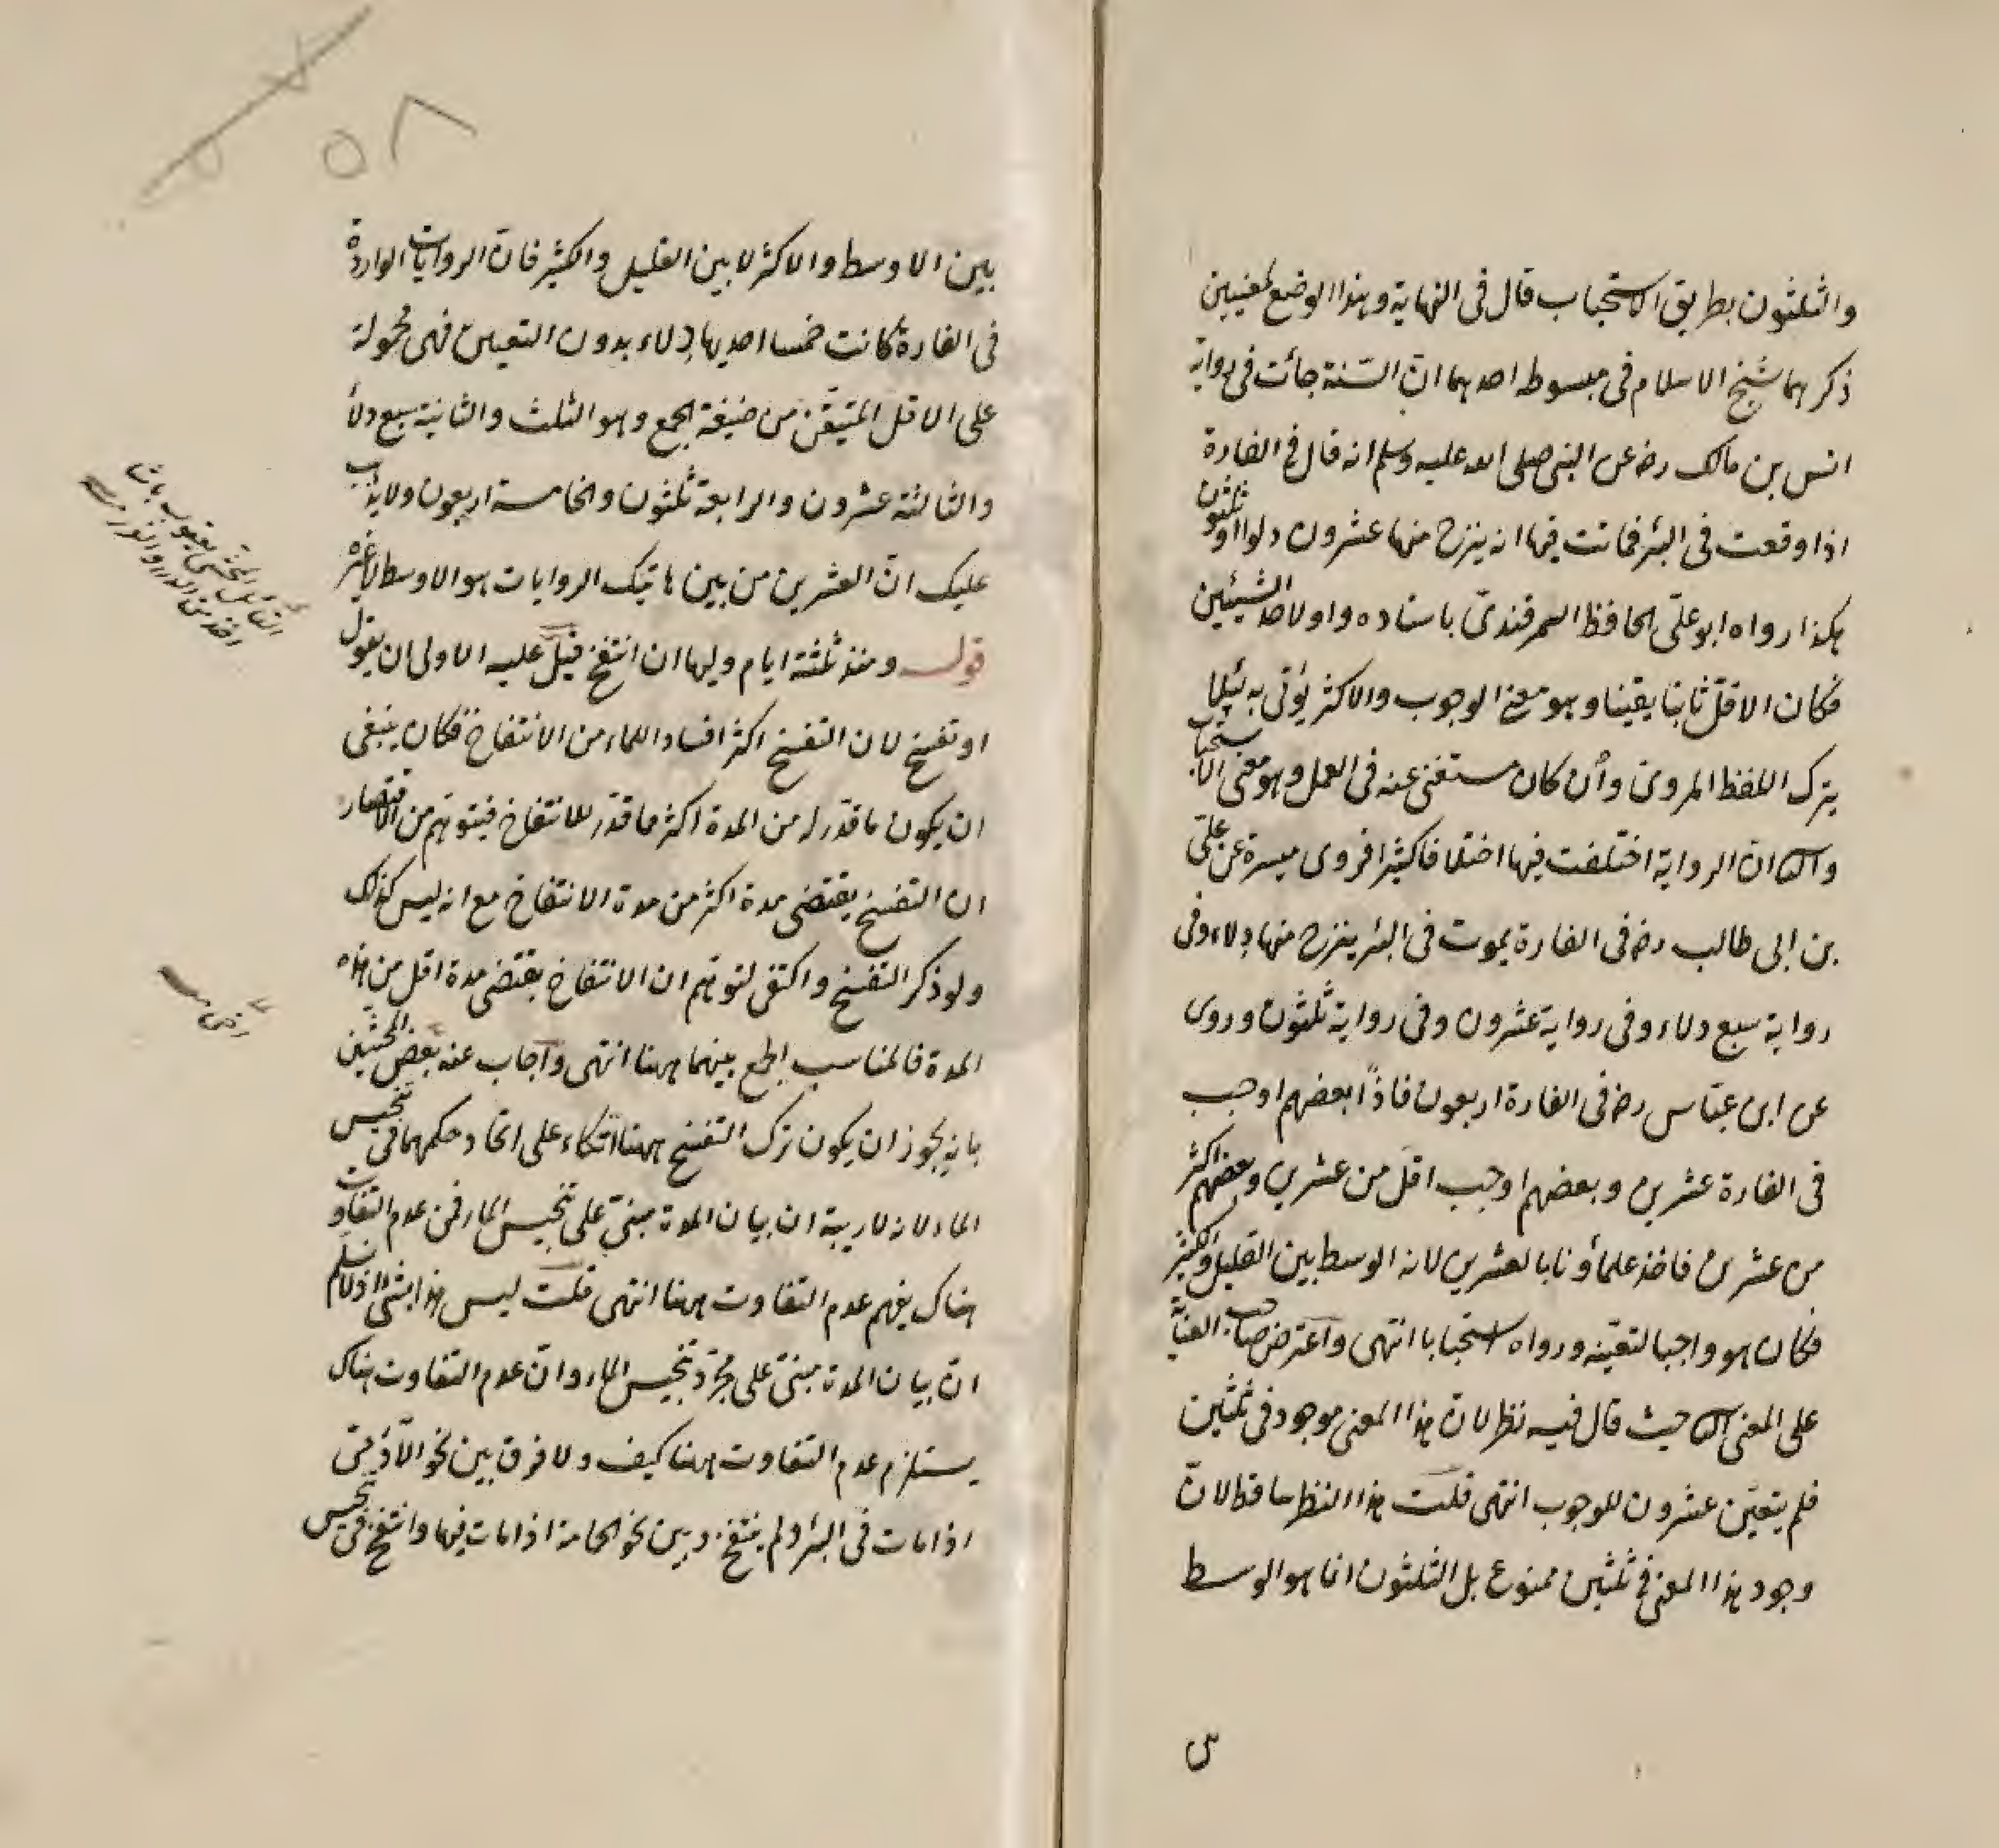 والثلثون بطريق الاستحباب قال فى النهاية وهذا الوضع لمعنيين
ذكرهما شيخ الاسلام فى مبسوطه احدهما ان السّنة جائت فى رواية
انس بن مالك رضه عن النبى صلى الله عليه وسلم انه قال فى الفارة
اذا وقعت فى البئر فماتت فيها انه ينزح منها عشرون دلوا او ثلثون
هكذا رواه ابو علىّ الحافظ السمرقندىّ باسناده واو لاحد الشيئين
فكان الاقلّ ثابتا يقينا وهو معنى الوجوب والاكثر يؤتى به لئلا
يترك اللفظ المروىّ وان كان مستغنى عنه فى العمل وهو معنى الاستحباب
والثا انّ الرواية اختلفت فيها اختلافا كثيرا فروى ميسرة عن علىّ
بن ابى طالب رضه فى الفارة يموت فى البئر ينزح منها دلاء وفى
رواية سبع دلاء وفى رواية عشرون وفى رواية ثلثون وروى
عن ابن عبّاس رضه فى الفارة اربعون فاذًا بعضهم اوجب
فى الفارة عشرين وبعضهم اوجب اقل من عشرين وبعضهم اكثر
من عشرين فاخذ علماؤنا بالعشرين لانه الوسط بين القليل والكثير
فكان هو واجبا لتعيّنه ورواه استحبابا انتهى واعترض صاحب العناية
على المعنى الثا حيث قال فيه نظر لان هذا المعنى موجود فى ثلثين
فلم يتعيّن عشرون للوجوب انتهى قلت هذا النظر ساقط لانّ
وجود هذا المعنى فى ثلثين ممنوع بل الثلثون انما هو الوسط
٥٨
بين الاوسط والاكثر لا بين القليل والكثير فانّ الروايات الواردة
فى الفارة كانت خمسا احديها دلاء بدون التعيين فهى محمولة
على الاقل المتيقّن من صيغة الجمع وهو الثلث والثانية سبع دلاء
والثالثة عشرون والرابعة ثلثون والخامسة اربعون ولا يذهب
عليك انّ العشرين من بين هاتيك الروايات هو الاوسط لا غيره
قوله ومنذ ثلثة ايام وليها ان انتفخ قيل عليه الاولى ان يقول
او تفسخ لان التفسخ اكثر افسادا للماء من الانتفاخ فكان ينبغى
ان يكون ما قدّر له من المدة اكثر مما قدّر للانتفاخ فيتوهّم من الاقتصار
ان التفسخ يقتضى مدة اكثر من مدة الانتفاخ مع انه ليس كذلك
ولو ذكر التفسخ واكتفى لتوهّم ان الانتفاخ يقتضى مدة اقل من هذه
المدة فالمناسب الجمع بينهما ههنا انتهى واجاب عنه بعض المحشّين
بانه يجوز ان يكون ترك التفسخ ههنا اتكاء على اتحاد حكمهما فى تنجيس
الماء لانه لا ريبة ان بيان المدة مبنىّ على تنجيس الماء فمن عدم التفاوت
هناك يفهم عدم التفاوت ههنا انتهى قلت ليس هذا بشئ اذ لا نسلم
انّ بيان المدة مبنىّ على مجرّد تنجيس الماء وانّ عدم التفاوت هناك
يستلزم عدم التفاوت ههنا كيف ولا فرق بين نحو الآدمىّ
اذا مات فى البئر ولم ينتفخ وبين نحو الحمامة اذا مات فيها وانتفخ فى تنجيس
القائل المحشّى يعقوب باشا